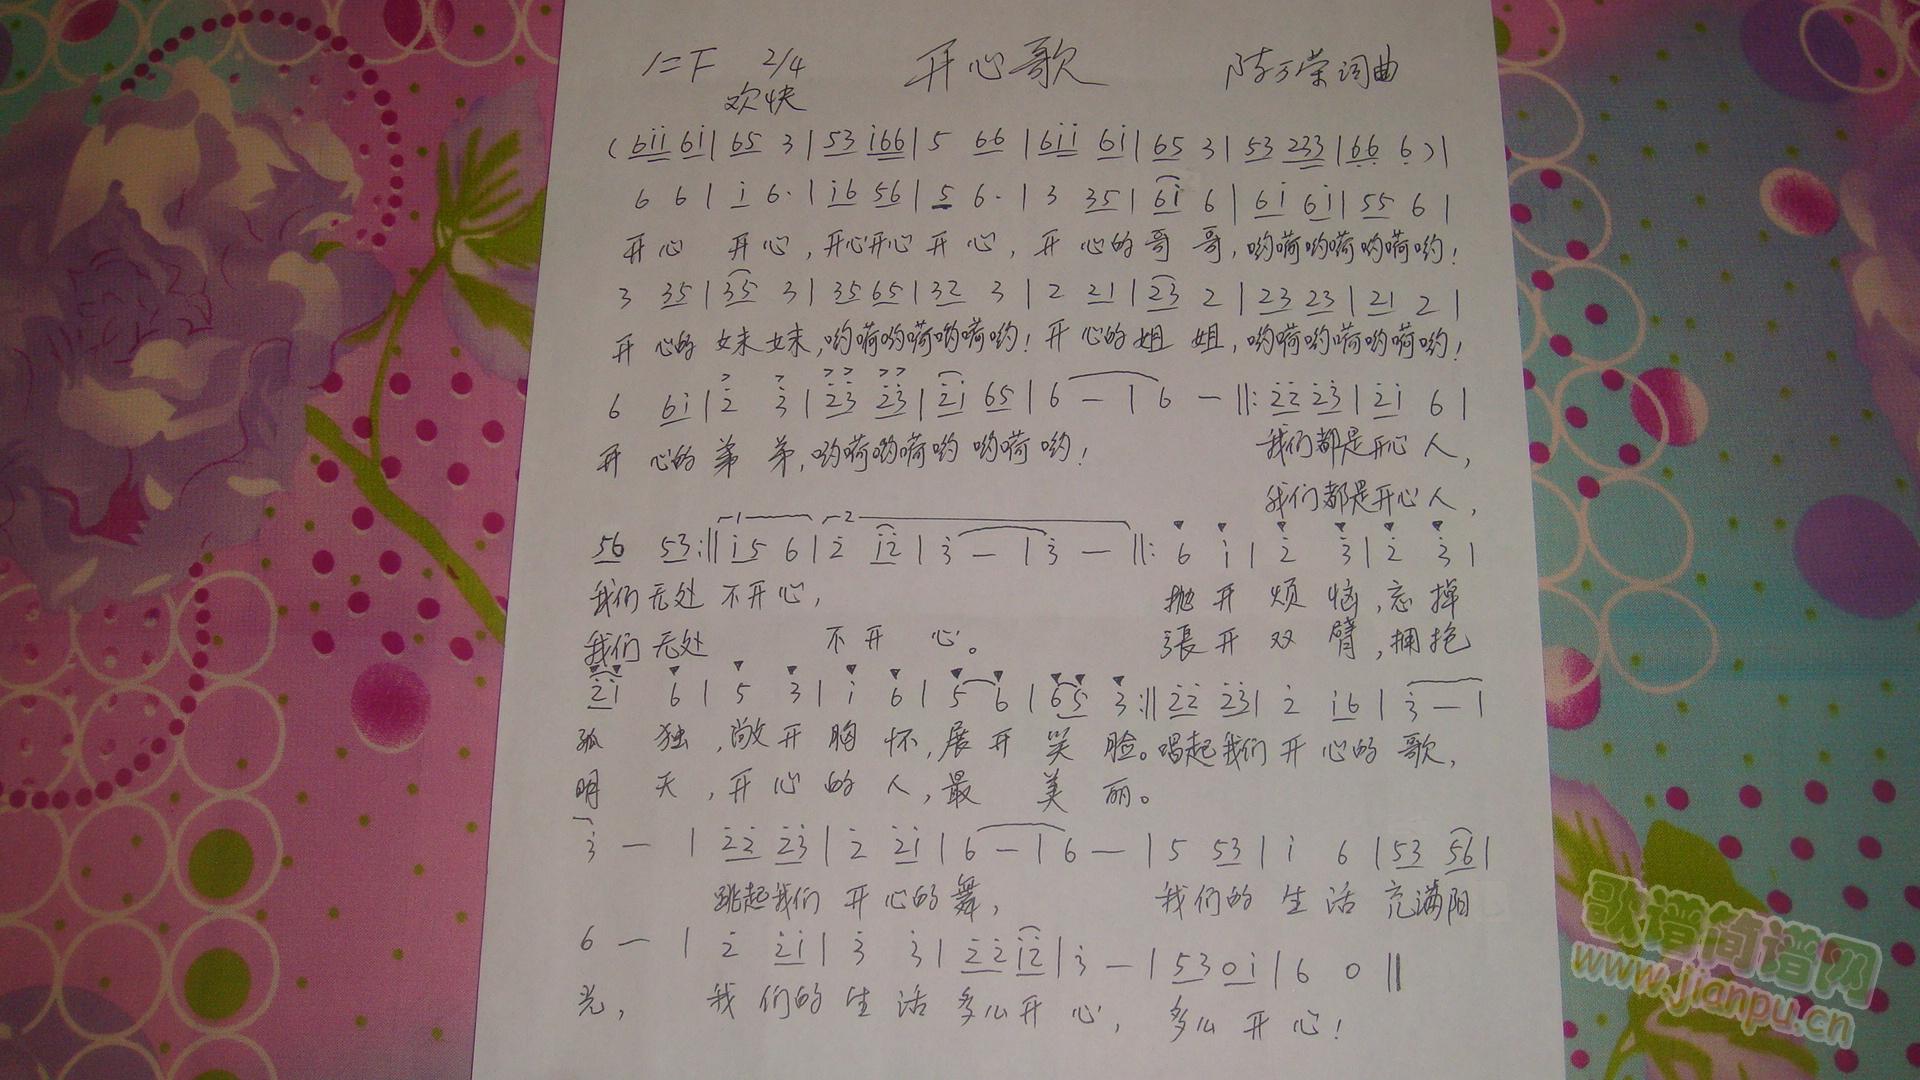 1=F 2/4 开心歌 陈万荣词曲
欢快
(6i̇i̇ 6i̇|65 3|53 i̇66|5 66|6i̇i̇ 6i̇|65 3|53 233|6̣6̣ 6̣)|
6 6|i̇ 6·|i̇6 56|5 6·|3 35|6i̇ 6|6i̇ 6i̇|55 6|
开心 开心,开心开心开心,开心的哥哥,哟嗬哟嗬哟嗬哟!
3 35|35 3|35 65|32 3|2 21|23 2|23 23|21 2|
开心的妹妹,哟嗬哟嗬哟嗬哟!开心的姐姐,哟嗬哟嗬哟嗬哟!
6 6i̇|2̇ 3̇|2̇3̇ 2̇3̇|2̇i̇ 65|6 —|6 —‖:2̇2̇ 2̇3̇|2̇i̇ 6|
开心的弟弟,哟嗬哟嗬哟哟嗬哟! 我们都是开心人,
我们都是开心人,
56 53:‖1 i̇5 6|2 2̇ i̇2̇|3̇ —|3̇ —‖:6 i̇|2̇ 3̇|2̇ 3̇|
我们无处不开心, 抛开烦恼,忘掉
我们无处 不开心。 張开双臂,拥抱
2̇i̇ 6|5 3|i̇ 6|5 6|65 3:‖2̇2̇ 2̇3̇|2̇ i̇6|3̇ —|
孤独,敞开胸怀,展开笑脸。唱起我们开心的歌,
明天,开心的人,最美丽。
3̇ —|2̇2̇ 2̇3̇|2̇ 2̇i̇|6 —|6 —|5 53|i̇ 6|53 56|
跳起我们开心的舞, 我们的生活充满阳
6 —|2̇ 2̇i̇|3̇ 3̇|2̇2̇ i̇2̇|3̇ —|53 0i̇|6 0‖
光, 我们的生活多么开心,多么开心!
歌谱简谱网
www.jianpu.cn